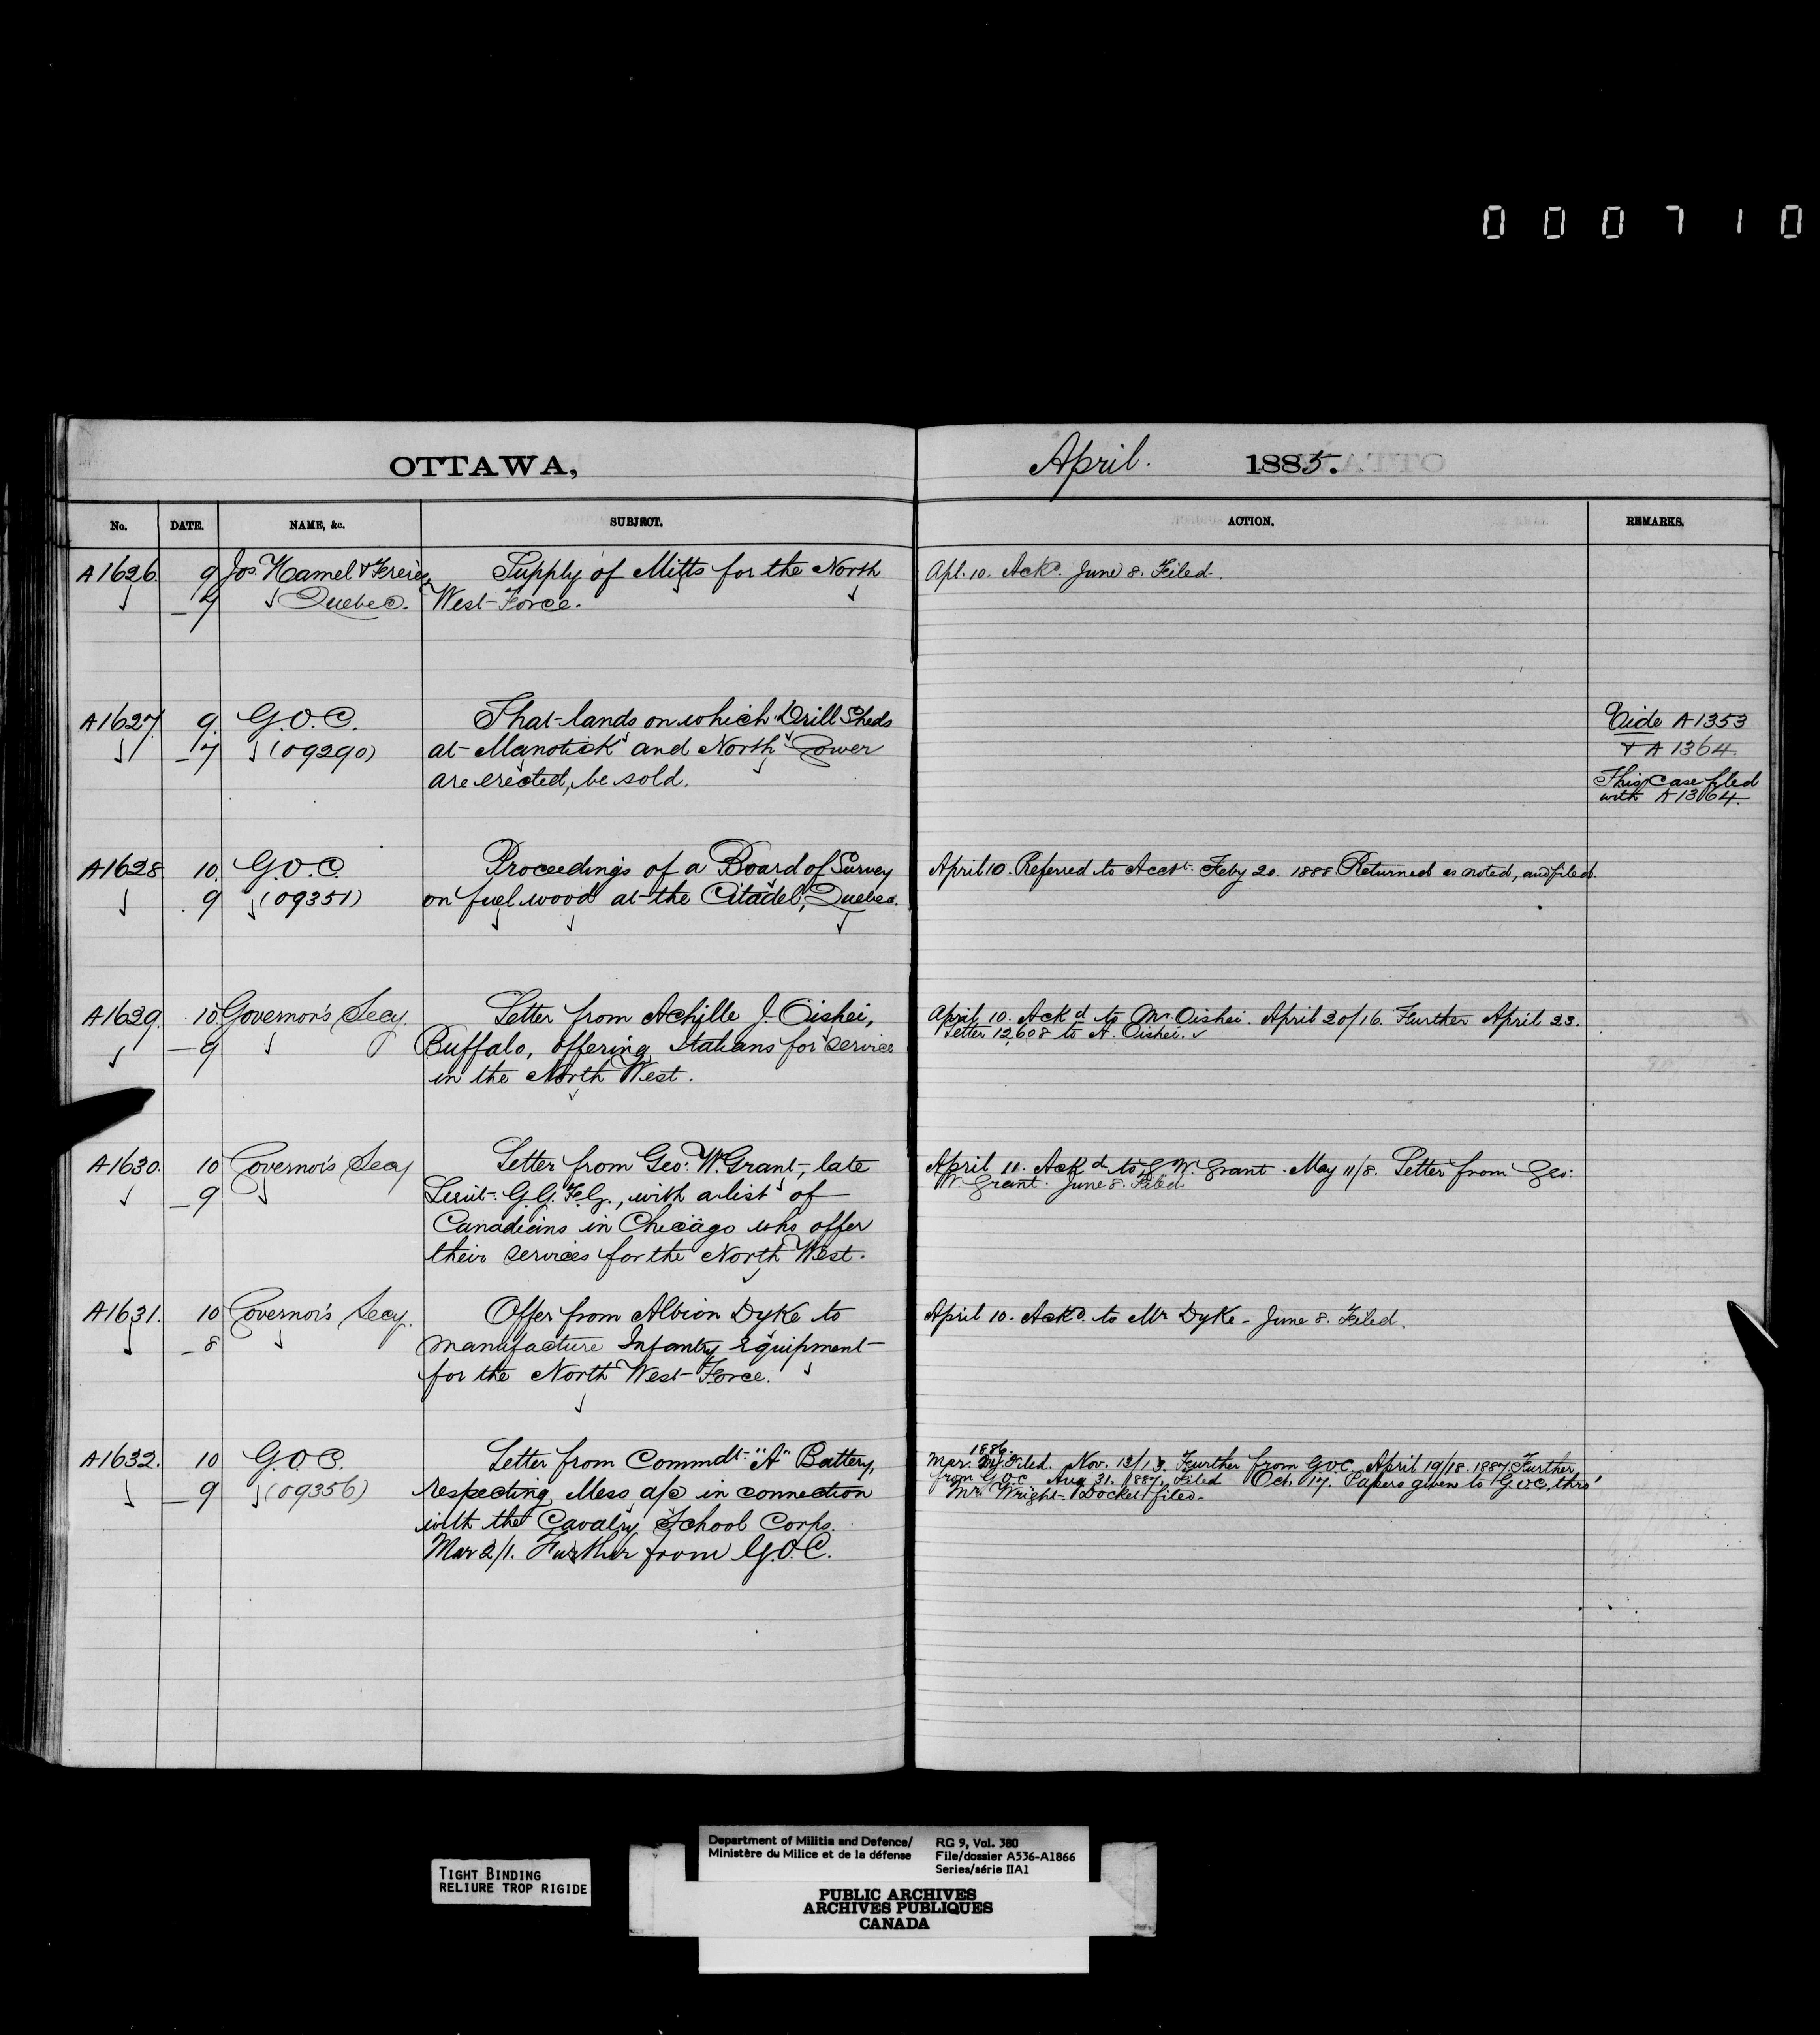 000710
OTTAWA,
April. 1885.
No. DATE. NAME, &c. SUBJECT. ACTION. REMARKS.
A1626. 9 Jos. Hamel & Freres, Supply of Mitts for the North Apl. 10. Ackd. June 8. Filed.
7 Quebec. West Force.
A1627 9. G.O.C. That lands on which Drill Sheds Vide A1353
7 (09290) at Manotick and North Gower & A1364.
are erected, be sold. This Case filed
with A1364.
A1628 10. G.O.C. Proceedings of a Board of Survey April 10. Referred to Acct. Feby 20. 1888 Returned as noted, and filed.
9 (09351) on fuel wood at the Citadel, Quebec.
A1629. 10 Governor's Secy. Letter from Achille J. Oishei, April 10. Ackd to Mr. Oishei. April 20/16. Further April 23.
9 Buffalo, offering Italians for service Letter 12,608 to A. Oishei.
in the North West.
A1630. 10 Governor's Secy Letter from Geo. W. Grant, late April 11. Ackd to G. W. Grant. May 11/8. Letter from Geo:
9 Lieut. G.G.F.G., with a list of W. Grant. June 8. Filed.
Canadians in Chicago who offer
their services for the North West.
A1631. 10 Governor's Secy. Offer from Albion Dyke to April 10. Ackd. to Mr Dyke - June 8. Filed.
8 manufacture Infantry Equipment
for the North West Force.
1886.
A1632. 10 G.O.C. Letter from Commdt. "A" Battery, Mar. Filed. Nov. 13/13. Further from G.O.C. April 19/18. 1887. Further
9 (09356) respecting Mess a/c in connection from G.O.C. Aug 31. 1887. Filed Oct. 17. Papers given to G.O.C, thro'
with the Cavalry School Corps. Mr. Wright - Docket filed.
Mar 2/1. Further from G.O.C.
TIGHT BINDING
RELIURE TROP RIGIDE
Department of Militia and Defence/ RG 9, Vol. 380
Ministère du Milice et de la défense File/dossier A536-A1866
Series/série IIA1
PUBLIC ARCHIVES
ARCHIVES PUBLIQUES
CANADA